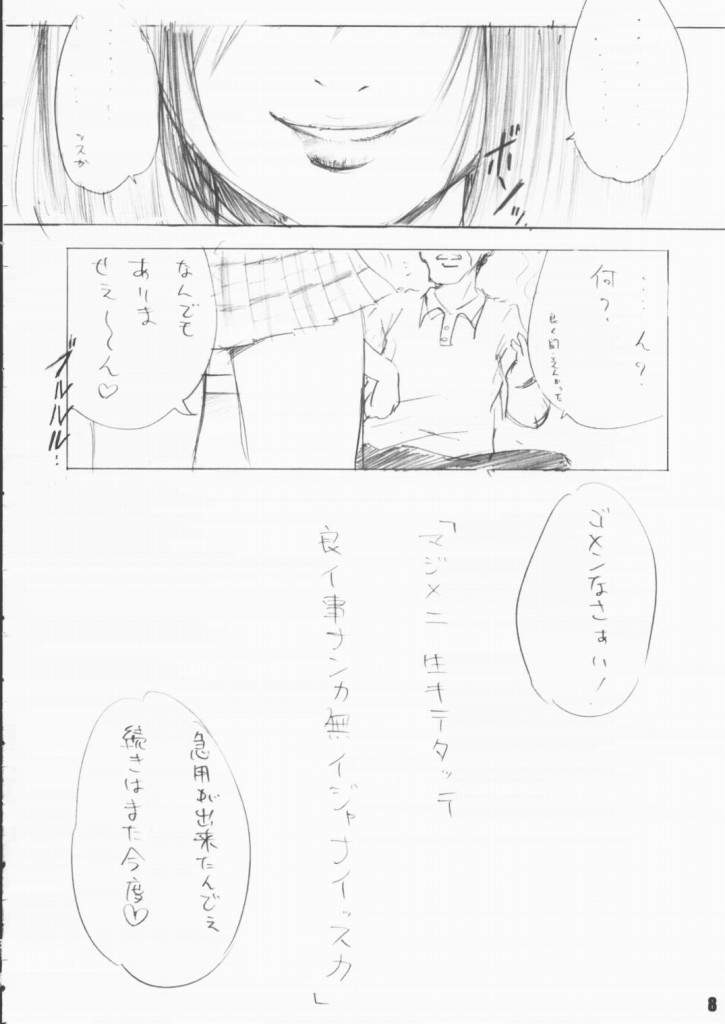 ‥‥‥‥
‥‥‥‥
‥‥‥‥
‥‥‥‥
ッスか
ボソッ
‥‥ん?
何?
なんでも
ありま
せぇ〜〜ん♡
ブルルルル…
ゴメンなさぁい!
「マジメニ生キテタッテ
良イ事ナンカ無イジャナイッスカ」
急用が出来たんでぇ
続きはまた今度♡
8